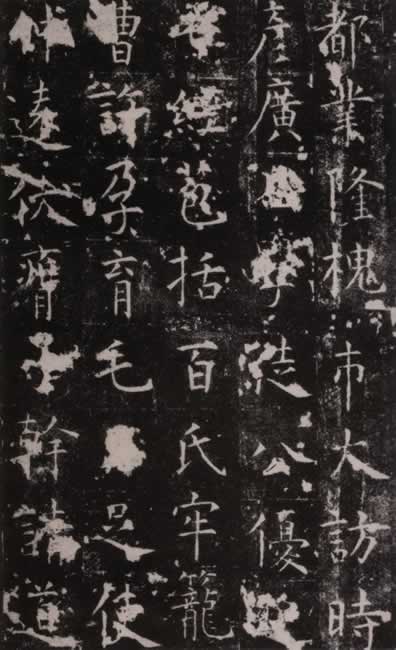 都業隆槐市大訪時
彦廣學公優
經苞括百氏牢籠
曹許孕育毛足使
仲遠伏膺子幹請道